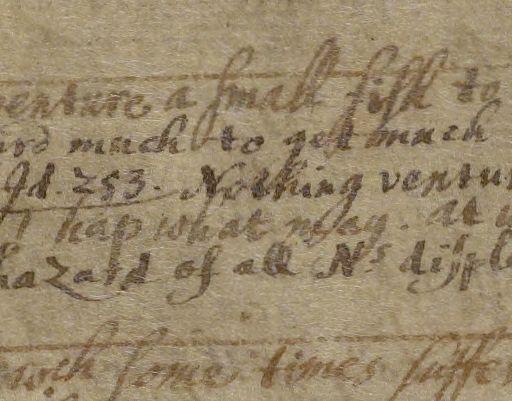 venture a small fish to
ard much to get much
Id. 253. Nothing ventu
hap what may. at
hazard of all Ns displ
some times suffe